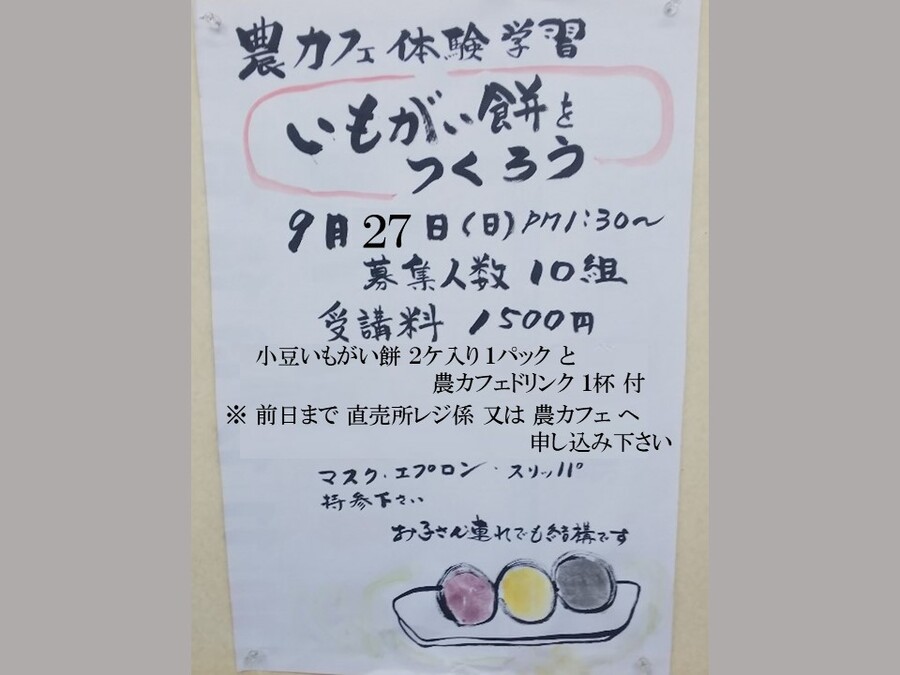 農カフェ体験学習
いもがい餅を
つくろう
9月27日(日)PM1:30〜
募集人数 10組
受講料 1500円
小豆いもがい餅 2ケ入り1パック と
農カフェドリンク 1杯 付
※ 前日まで 直売所レジ係 又は 農カフェ へ
申し込み下さい
マスク・エプロン・スリッパ
持参下さい
お子さん連れでも結構です